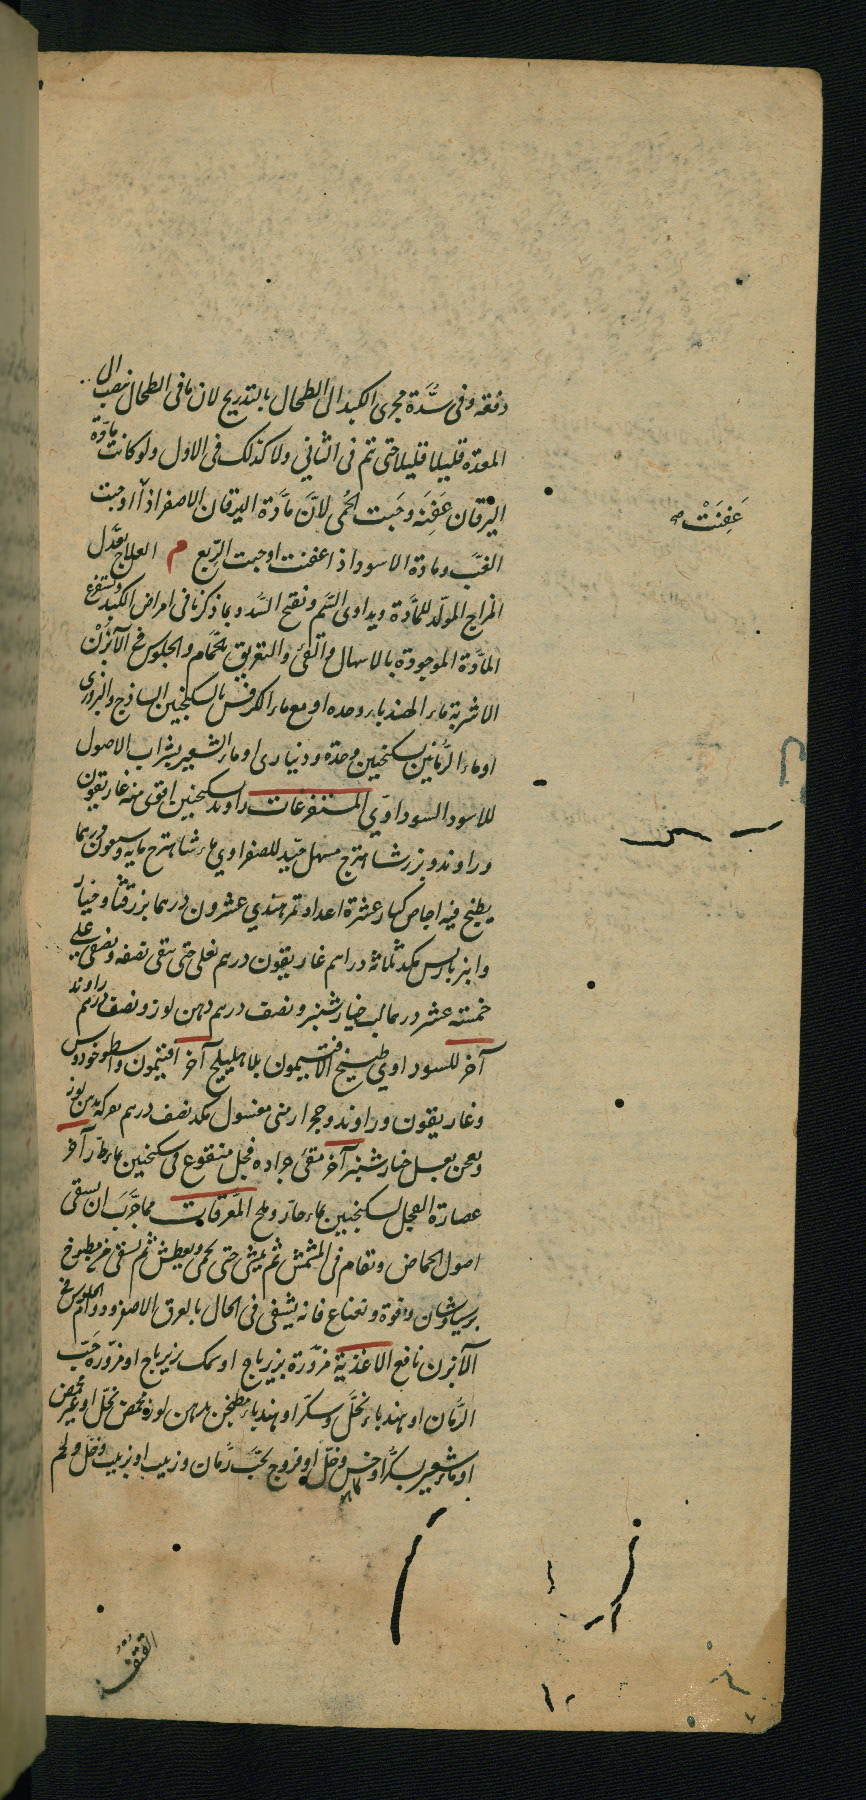 دفعة وفى سدّة مجرى الكبد الى الطحال بالتدريج لان ما فى الطحال ينصب الى
المعدة قليلا قليلا حتى تم فى الثاني ولا كذلك فى الاول ولو كانت مادّة
اليرقان عَفِنَه وجَبت الحُمى لانّ مادّة اليرقان الاصفر اذا اوجبت
عَفِنَتْ صح
الغبّ ومادة الاسود اذا عفنت اوجبت الرِّبع م العلاج يعدّل
المزاج المولّد للمادّة ويداوى السّم ونفتح السّدد وبما ذكرنا فى امراض الكبد ويستفرغ
المادّة الموجودة بالاسهال والقئ والتعريق بالحمّام والجلوس فى الآبزن
الاشربة ماء الهندباء وحده او مع ماء الكرفس بالسكنجبين الساذج والبزورى
او ماء الرمّانين بسكنجبين وحده ودنيارى او ماء الشعير بشراب الاصول
للاسود السوداوّي المستفرغات راوند بسكنجبين اقوى منه غاريقون
وراوند وبزر شاهترج مسهل جيّد للصفراوي ماء شاهترج مايه وسبعون درهما
يطبخ فيه اجاص كبار عشرة اعداد تمر هندي عشرون درهما بزر قثا وخيار
وانبرباريس مكد ثلاثة دراهم غاريقون درهم يغلى حتى يبقى نصفه ويصفى على
خمسة عشر درهما لب خيارشنبر ونصف درهم دهن لوز ونصف درهم راوند
آخر للسوداوي طبيخ الافتيمون بلا هليلج آخر افتيمون واسطوخودوس
وغاريقون وراوند وحجر ارمنى مغسول مكد نصف درهم يعرك بدهن لوز
ويعجن بعسل خيارشنبر آخر مقئ جراده فجل منقوع فى سكنجبين بماء حارّ آخر
عصارة الفجل بسكنجبين بماء حارّ وملح المعّرقات مما جُرِّبَ ان يسقى
اصول الحماض ويقام فى الشمس ثم يمشى حتى يحمى ويعطش ثم يسقى من مطبوخ
برسياوشان وفوة ونعناع فانه يشفى فى الحال بالعرق الاصفر ودوام الجلوس فى
الآبزن نافع الاغذية مزوّرة بزيرباج او سمك زيرباج او مزوّرة حَبّ
الرُّمان او هندباء بخلّ وسكّر او هندباء مطجّن بدهن لوز محمض بخلّ او غير محمض
او ماء شعير بسكّر او خس وخلّ او فروج بحبّ رُمان وزبيب او زبيب وخلّ ولحم